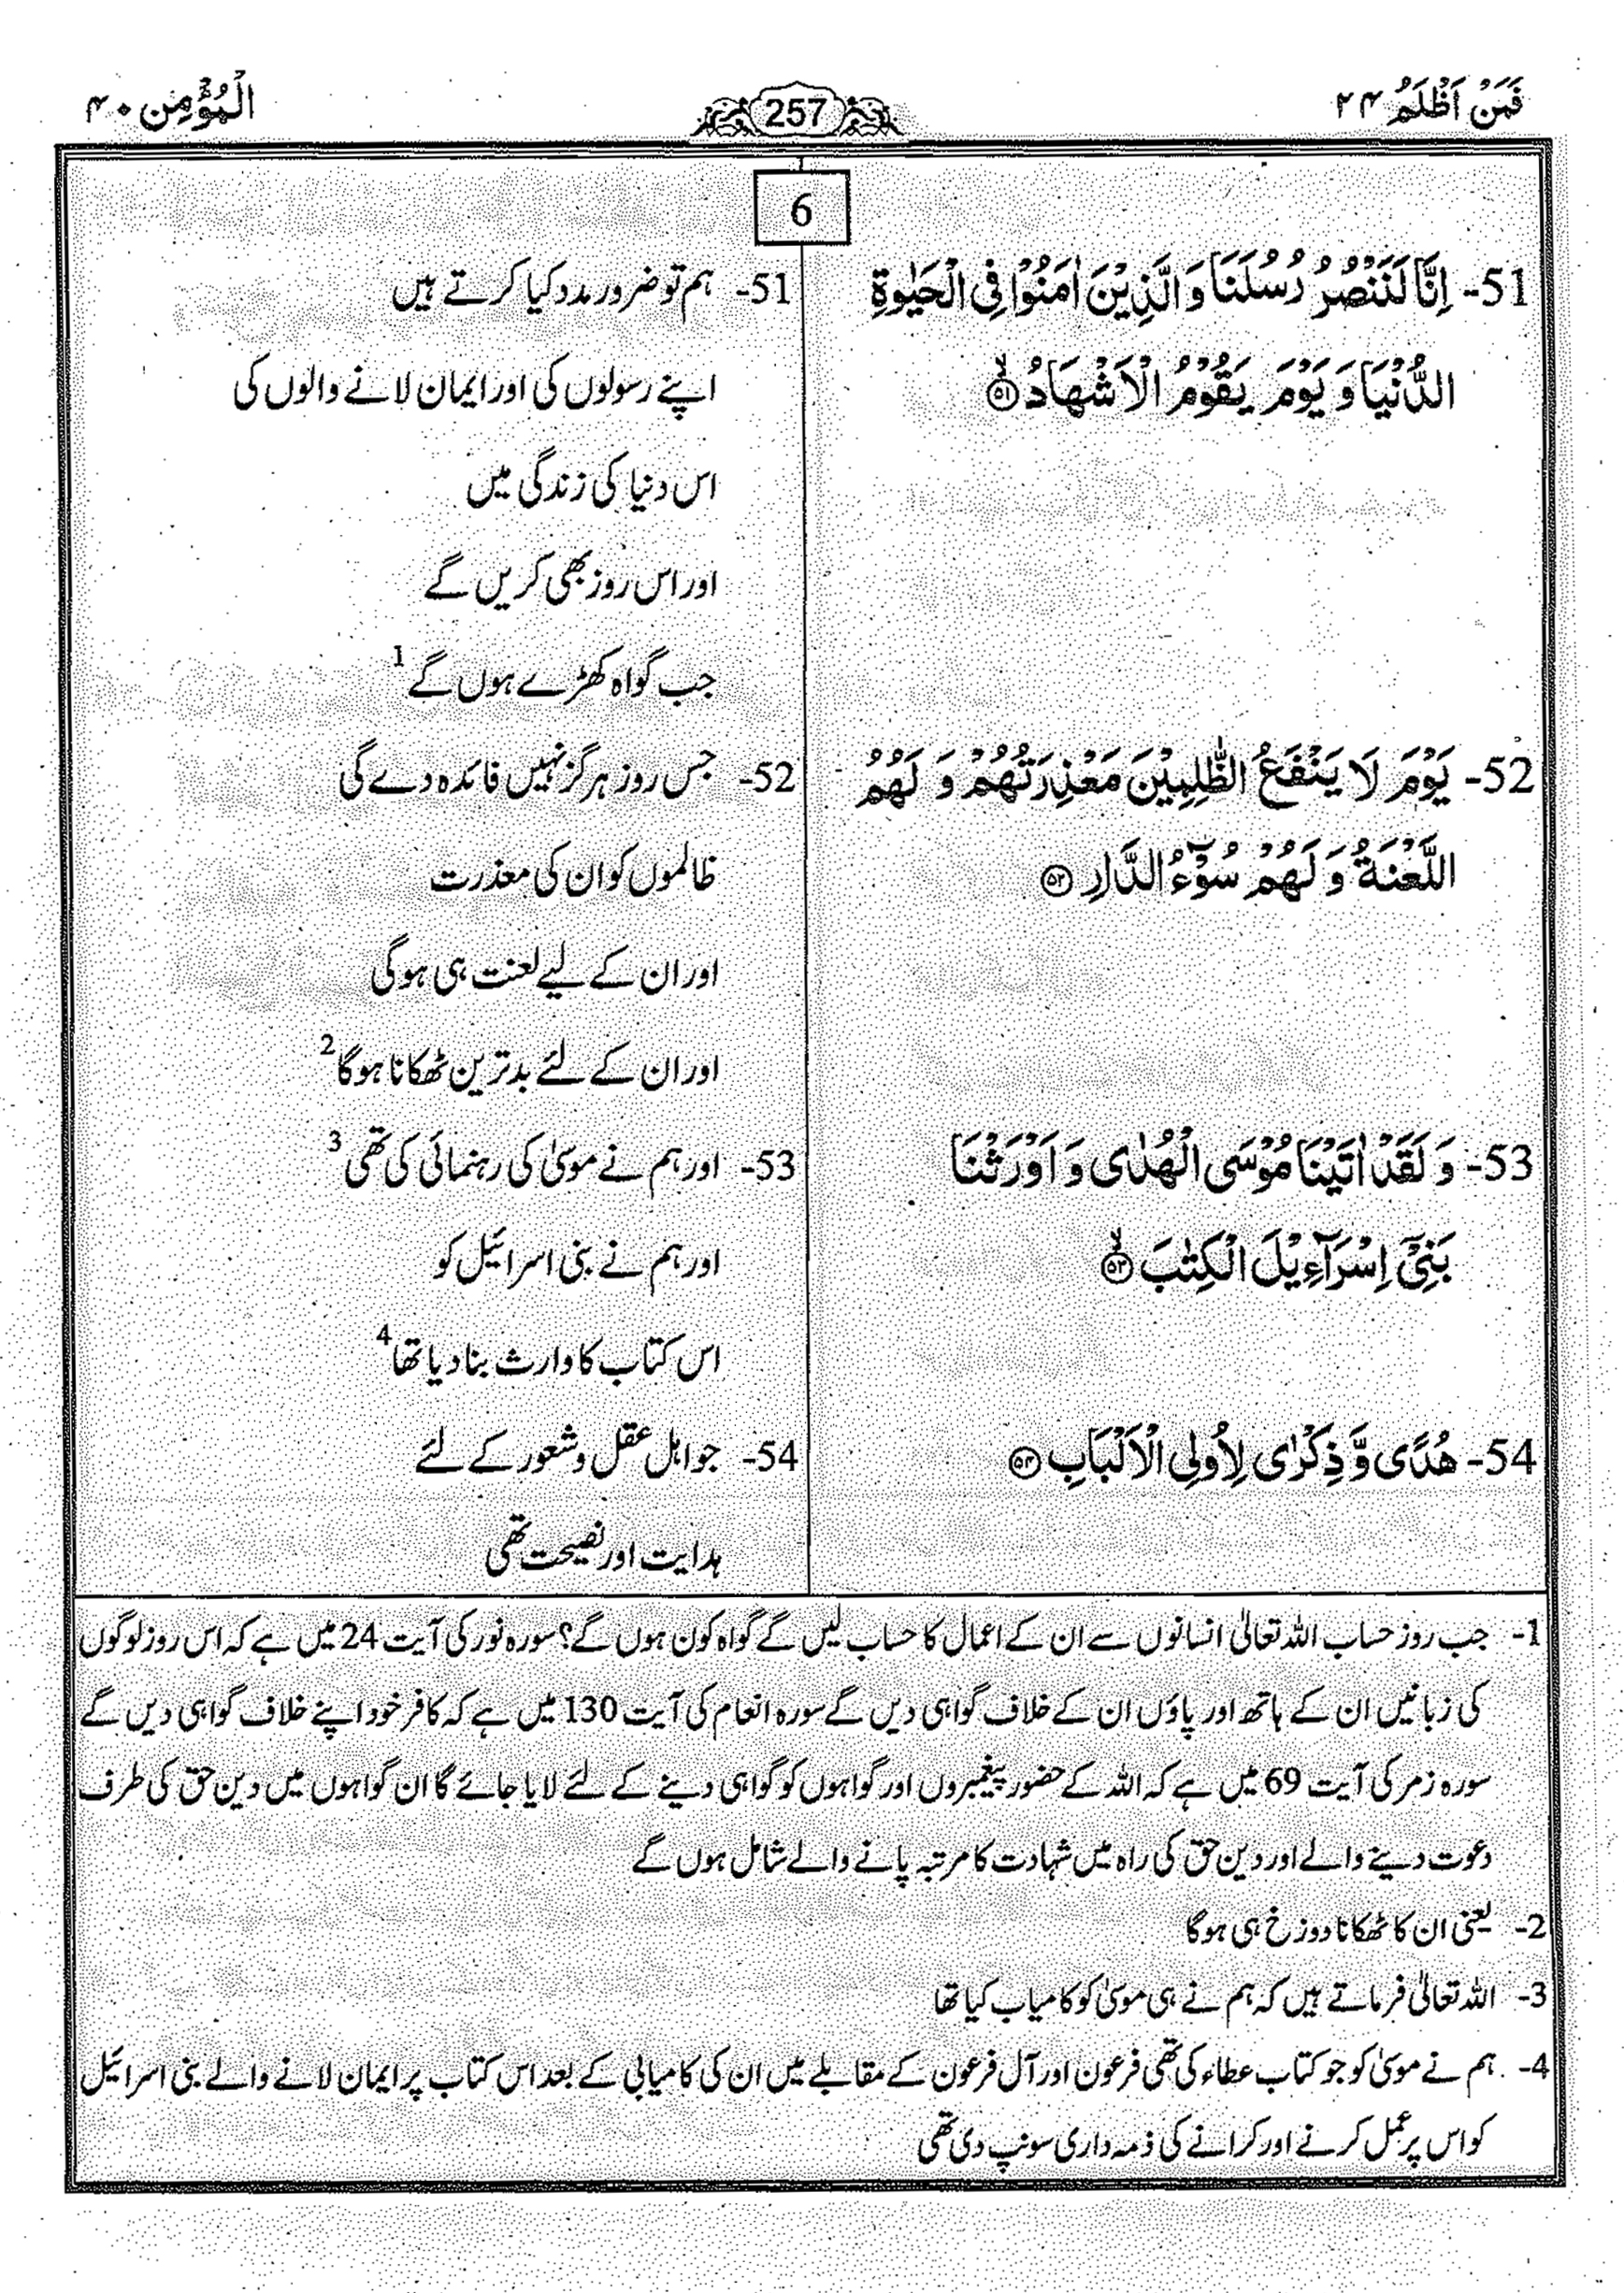 فَمَنْ اَظْلَمُ ۲۴
257
الْمُؤْمِن ۴۰
6
51- اِنَّا لَنَنْصُرُ رُسُلَنَا وَ الَّذِيْنَ اٰمَنُوْا فِى الْحَيٰوةِ
الدُّنْيَا وَ يَوْمَ يَقُوْمُ الْاَشْهَادُ ۙ‏﴿۵۱﴾
52- يَوْمَ لَا يَنْفَعُ الظّٰلِمِيْنَ مَعْذِرَتُهُمْ وَ لَهُمُ
اللَّعْنَةُ وَ لَهُمْ سُوْٓءُ الدَّارِ ﴿۵۲﴾
53- وَ لَقَدْ اٰتَيْنَا مُوْسَى الْهُدٰى وَ اَوْرَثْنَا
بَنِىْٓ اِسْرَآءِيْلَ الْكِتٰبَ ۙ‏﴿۵۳﴾
54- هُدًى وَّ ذِكْرٰى لِاُولِى الْاَلْبَابِ ﴿۵۴﴾
51- ہم تو ضرور مدد کیا کرتے ہیں
اپنے رسولوں کی اور ایمان لانے والوں کی
اس دنیا کی زندگی میں
اور اس روز بھی کریں گے
جب گواہ کھڑے ہوں گے 1
52- جس روز ہرگز نہیں فائدہ دے گی
ظالموں کو ان کی معذرت
اور ان کے لیے لعنت ہی ہوگی
اور ان کے لئے بدترین ٹھکانا ہوگا 2
53- اور ہم نے موسیٰ کی رہنمائی کی تھی 3
اور ہم نے بنی اسرائیل کو
اس کتاب کا وارث بنا دیا تھا 4
54- جو اہل عقل و شعور کے لئے
ہدایت اور نصیحت تھی
1- جب روز حساب اللہ تعالیٰ انسانوں سے ان کے اعمال کا حساب لیں گے گواہ کون ہوں گے؟ سورہ نور کی آیت 24 میں ہے کہ اس روز لوگوں
کی زبانیں ان کے ہاتھ اور پاؤں ان کے خلاف گواہی دیں گے سورہ انعام کی آیت 130 میں ہے کہ کافر خود اپنے خلاف گواہی دیں گے
سورہ زمر کی آیت 69 میں ہے کہ اللہ کے حضور پیغمبروں اور گواہوں کو گواہی دینے کے لئے لایا جائے گا ان گواہوں میں دین حق کی طرف
دعوت دینے والے اور دین حق کی راہ میں شہادت کا مرتبہ پانے والے شامل ہوں گے
2- یعنی ان کا ٹھکانا دوزخ ہی ہوگا
3- اللہ تعالیٰ فرماتے ہیں کہ ہم نے ہی موسیٰ کو کامیاب کیا تھا
4- ہم نے موسیٰ کو جو کتاب عطاء کی تھی فرعون اور آل فرعون کے مقابلے میں ان کی کامیابی کے بعد اس کتاب پر ایمان لانے والے بنی اسرائیل
کو اس پر عمل کرنے اور کرانے کی ذمہ داری سونپ دی تھی